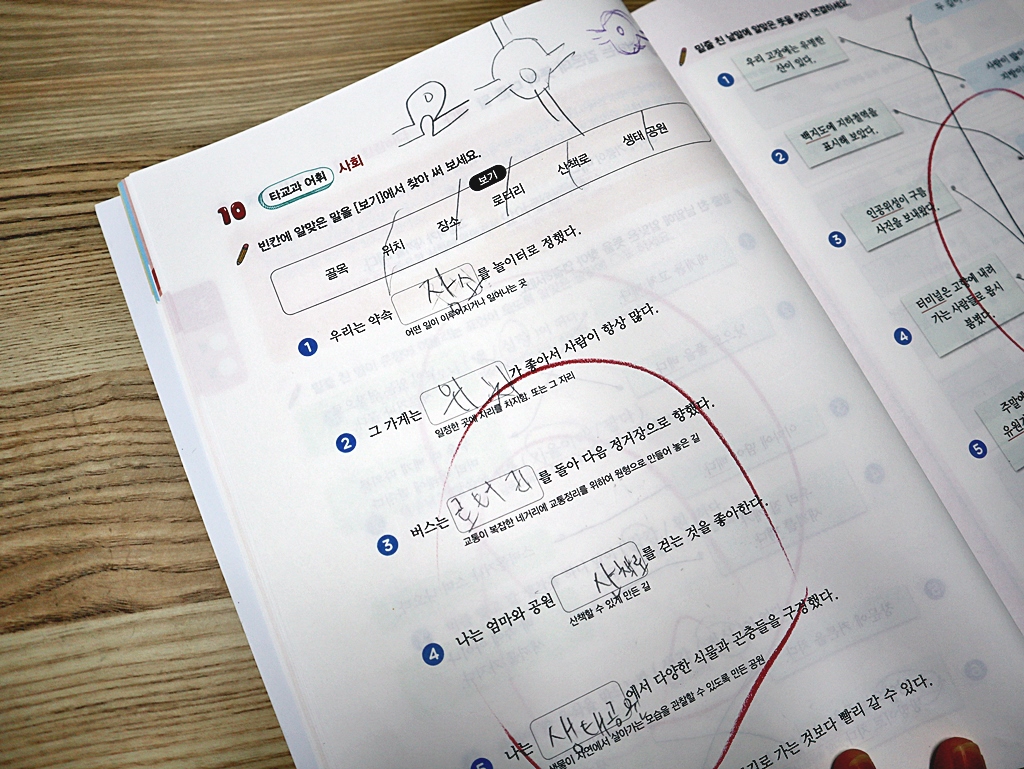 10 타교과 어휘 사회
빈칸에 알맞은 말을 [보기]에서 찾아 써 보세요.
보기
골목 위치 장소 로터리 산책로 생태 공원
1 우리는 약속 장소를 놀이터로 정했다.
어떤 일이 이루어지거나 일어나는 곳
2 그 가게는 위치가 좋아서 사람이 항상 많다.
일정한 곳에 자리를 차지함. 또는 그 자리
3 버스는 로터리를 돌아 다음 정거장으로 향했다.
교통이 복잡한 네거리에 교통정리를 위하여 원형으로 만들어 놓은 길
4 나는 엄마와 공원 산책로를 걷는 것을 좋아한다.
산책할 수 있게 만든 길
5 나는 생태공원에서 다양한 식물과 곤충들을 구경했다.
생물이 자연에서 살아가는 모습을 관찰할 수 있도록 만든 공원
로 가는 것보다 빨리 갈 수 있다.
밑줄 친 낱말에 알맞은 뜻을 찾아 연결하세요.
1 우리 고장에는 유명한
산이 있다.
2 백지도에 지하철역을
표시해 보았다.
3 인공위성이 구름
사진을 보내왔다.
4 터미널은 고향에 내려
가는 사람들로 몹시
붐볐다.
5 주말에
유원지